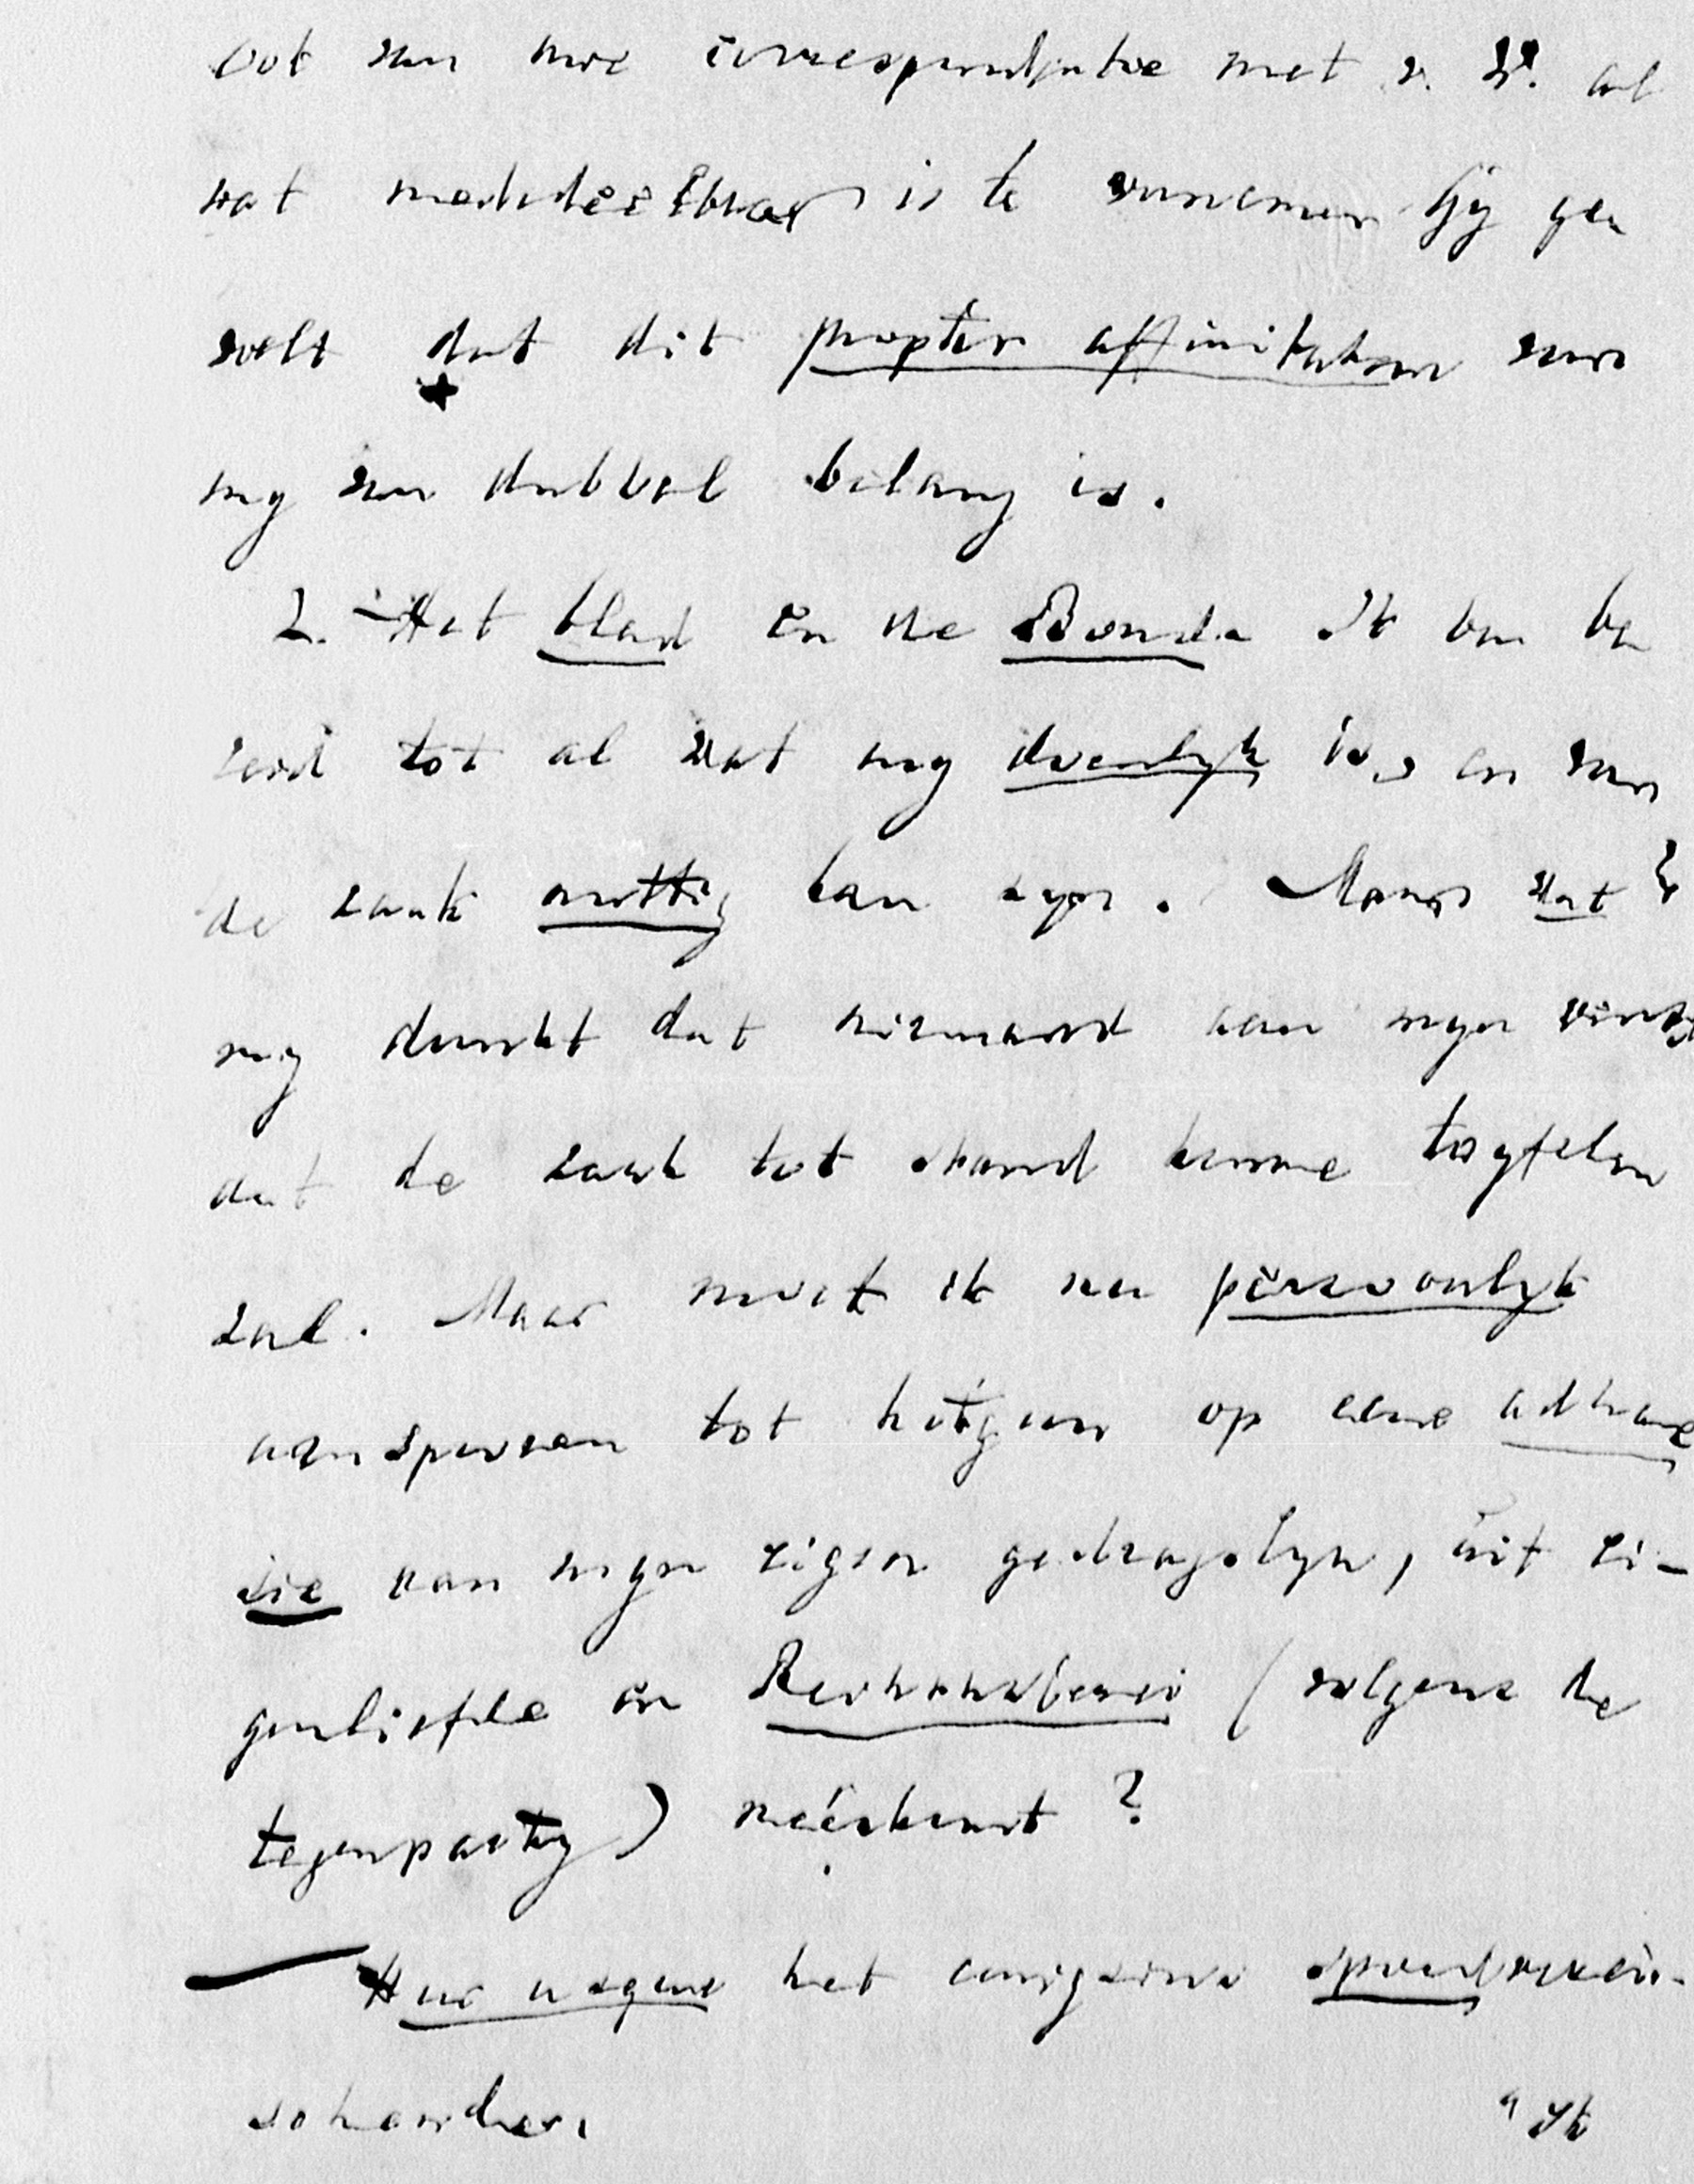 ook van uwe correspondentie met v. V. al
wat mededeelbaar is te vernemen. Gy ge
voelt dat dit propter affinitatem voor
my van dubbel belang is.
2. - Het blad en de Bond. Ik ben be
reid tot al wat my doenlyk is, en voor
de zaak nuttig kan zyn. Maar wat?
my dunkt dat niemand aan myn
dat de zaak tot stand kome twyfelen
zal. Maar moet ik nu persoonlyk
aansporen tot hetgeen op eene adhae
sie aan myn eigen gedragslyn, uit ei-
genliefde en (volgens de
tegenparty) neêrkomt?
Hur wegens het eenigzins
schonden. Ik